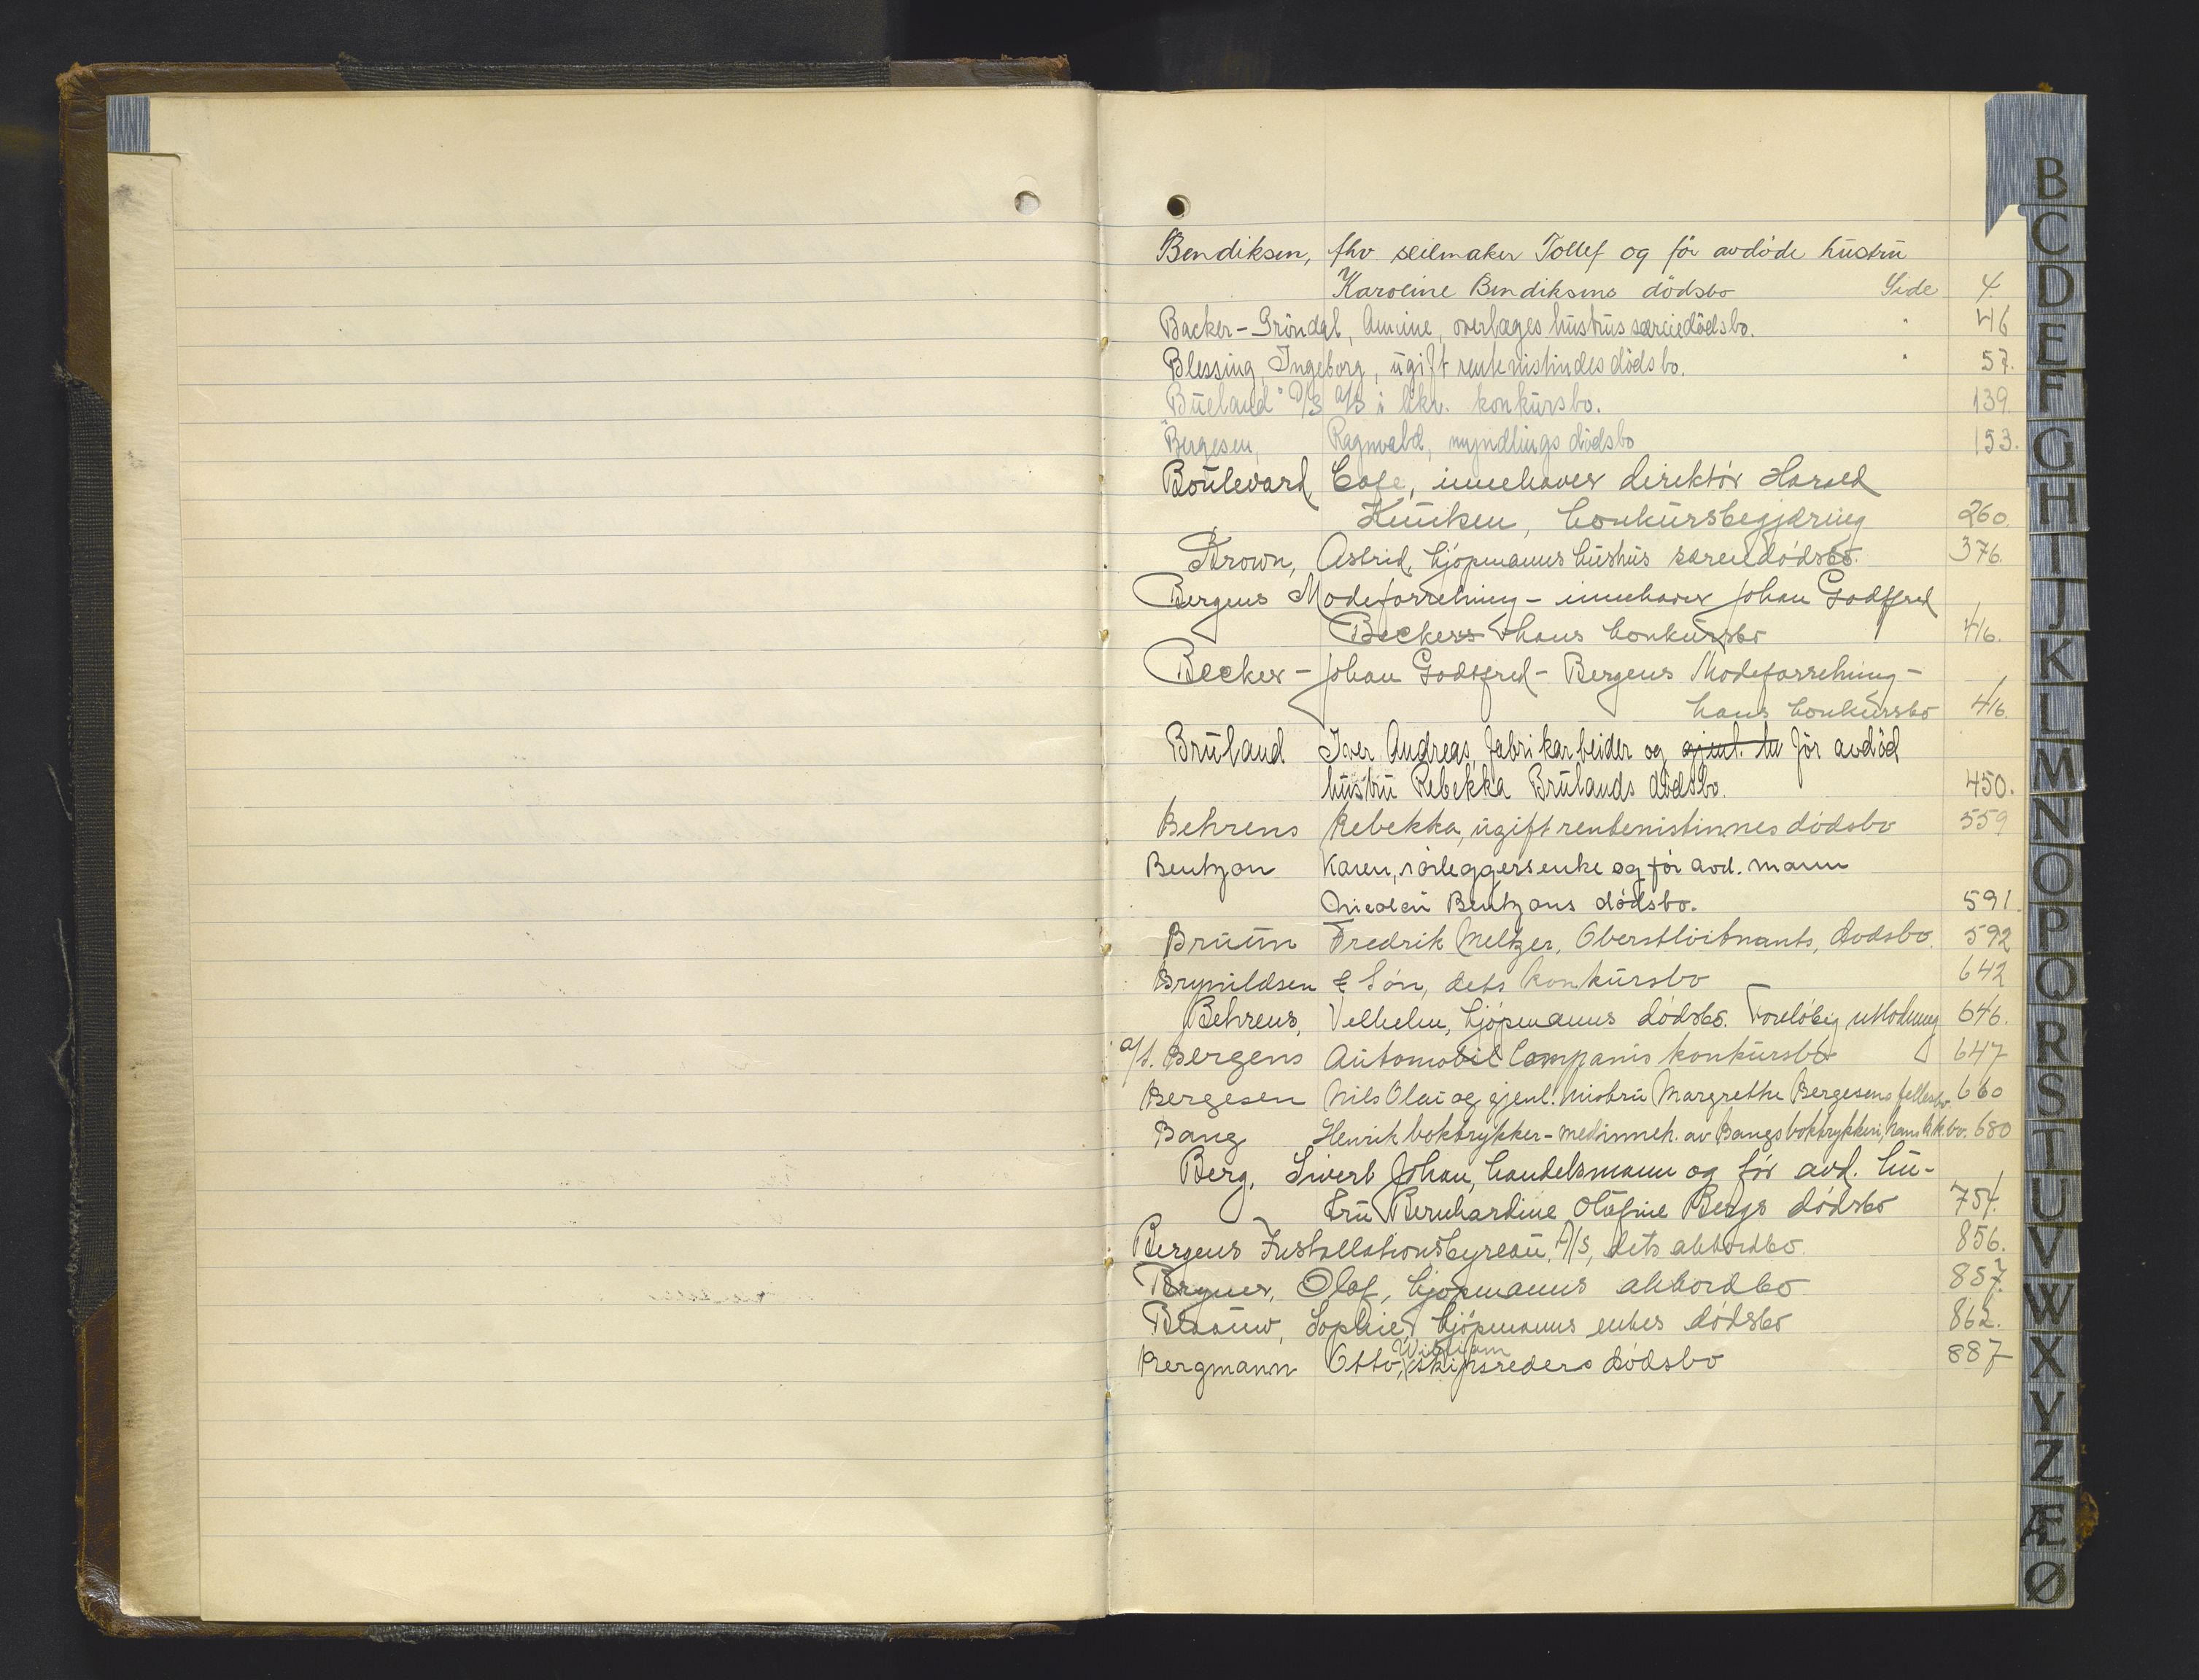 Bendiksen, fhv. seilmaker Tollef og før avdøde hustru
Karoline Bendiksens dødsbo Side 4.
Backer-Gröndal, Amine, overlæges hustrus særeiedødsbo. " 46
Blessing, Ingeborg, ugift rentenistindes dødsbo. " 57.
"Bueland" D/S A/S i likv. konkursbo. 139.
Bergesen, Ragnvald, myndlings dødsbo 153.
Boulevard Cafe, innehaver direktør Harald
konkursbegjæring 260.
Brown, Astrid, kjøpmanns hustrus særeiedødsbo. 376.
Bergens Modeforretning - innehaver Johan Godtfred
Beckers - hans konkursbo 416.
Becker - Johan Godtfred - Bergens Modeforretning -
hans konkursbo 416.
Bruland Iver Andreas, fabrikarbeider og gjenl. hu før avdød
hustru Rebekka Brulands dødsbo. 450.
Behrens Rebekka, ugift rentenistinnes dødsbo 559
Bentzon Karen, rørleggersenke og før avd. mann
Nicolai Bentzons dødsbo. 591.
Bruun Fredrik Meltzer, Oberstløitnants, dødsbo. 592
Brynildsen & Søn, dets konkursbo 642
Behrens, Vilhelm, kjøpmanns dødsbo. Foreløbig utlodning 646.
a/s. Bergens Automobil Companis konkursbo 647
Bergesen Nils Olai og gjenl. hustru Margrethe Bergesens fellesbo. 660
Bang Henrik boktrykker - medinneh. av Bangs boktrykkeri, hans k.k.bo. 680
Berg, Sivert Johan, handelsmann og før avd. hu-
stru Bernhardine Olufine Bergs dødsbo 754.
Bergens Installationsbyreau, A/S, dets akkordbo. 856.
Bryner, Olaf, kjøpmanns akkordbo 857.
Blaauw, Sophie, kjøpmanns enkes dødsbo 862.
William
Bergmann Otto, skipsreders dødsbo 887
B
C
D
E
F
G
H
I
J
K
L
M
N
O
P
Q
R
S
T
U
V
W
X
Y
Z
Æ
Ø